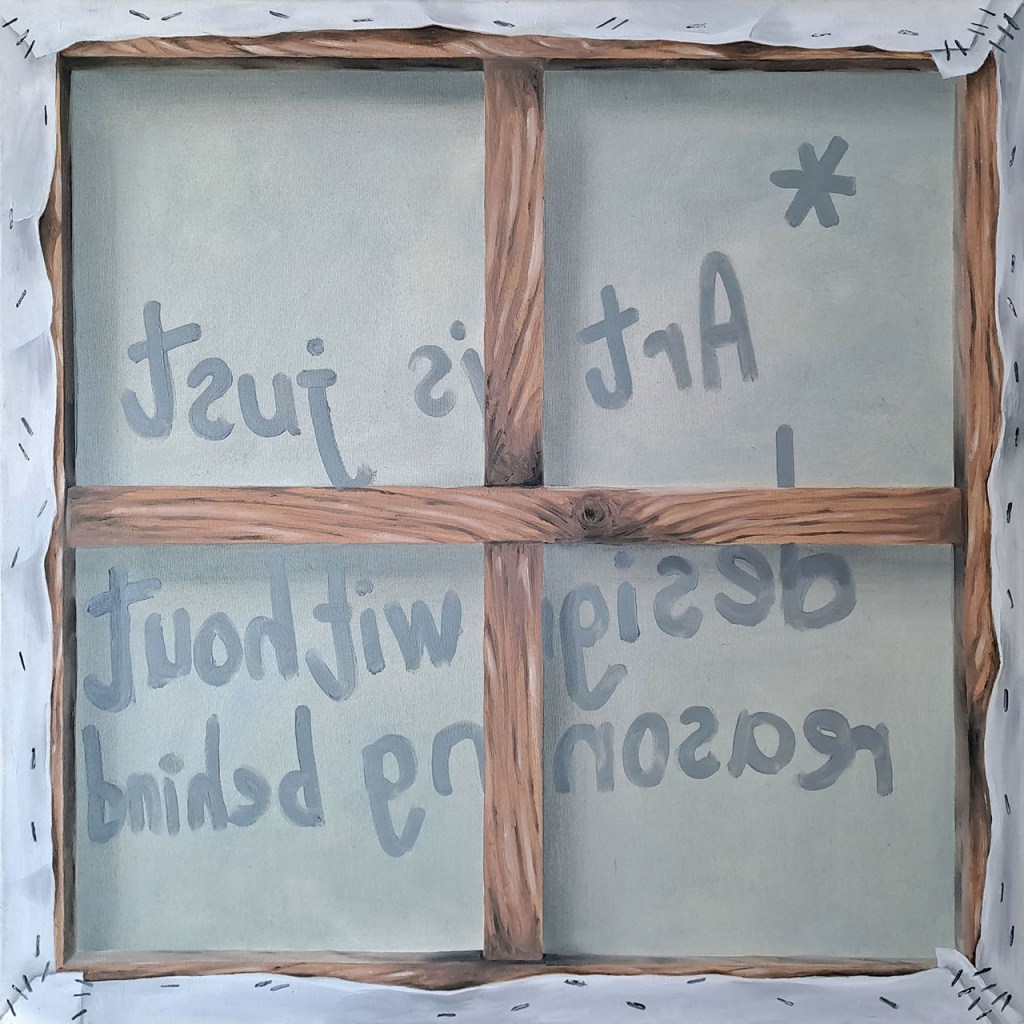 *
Art is just
design without
reasoning behind